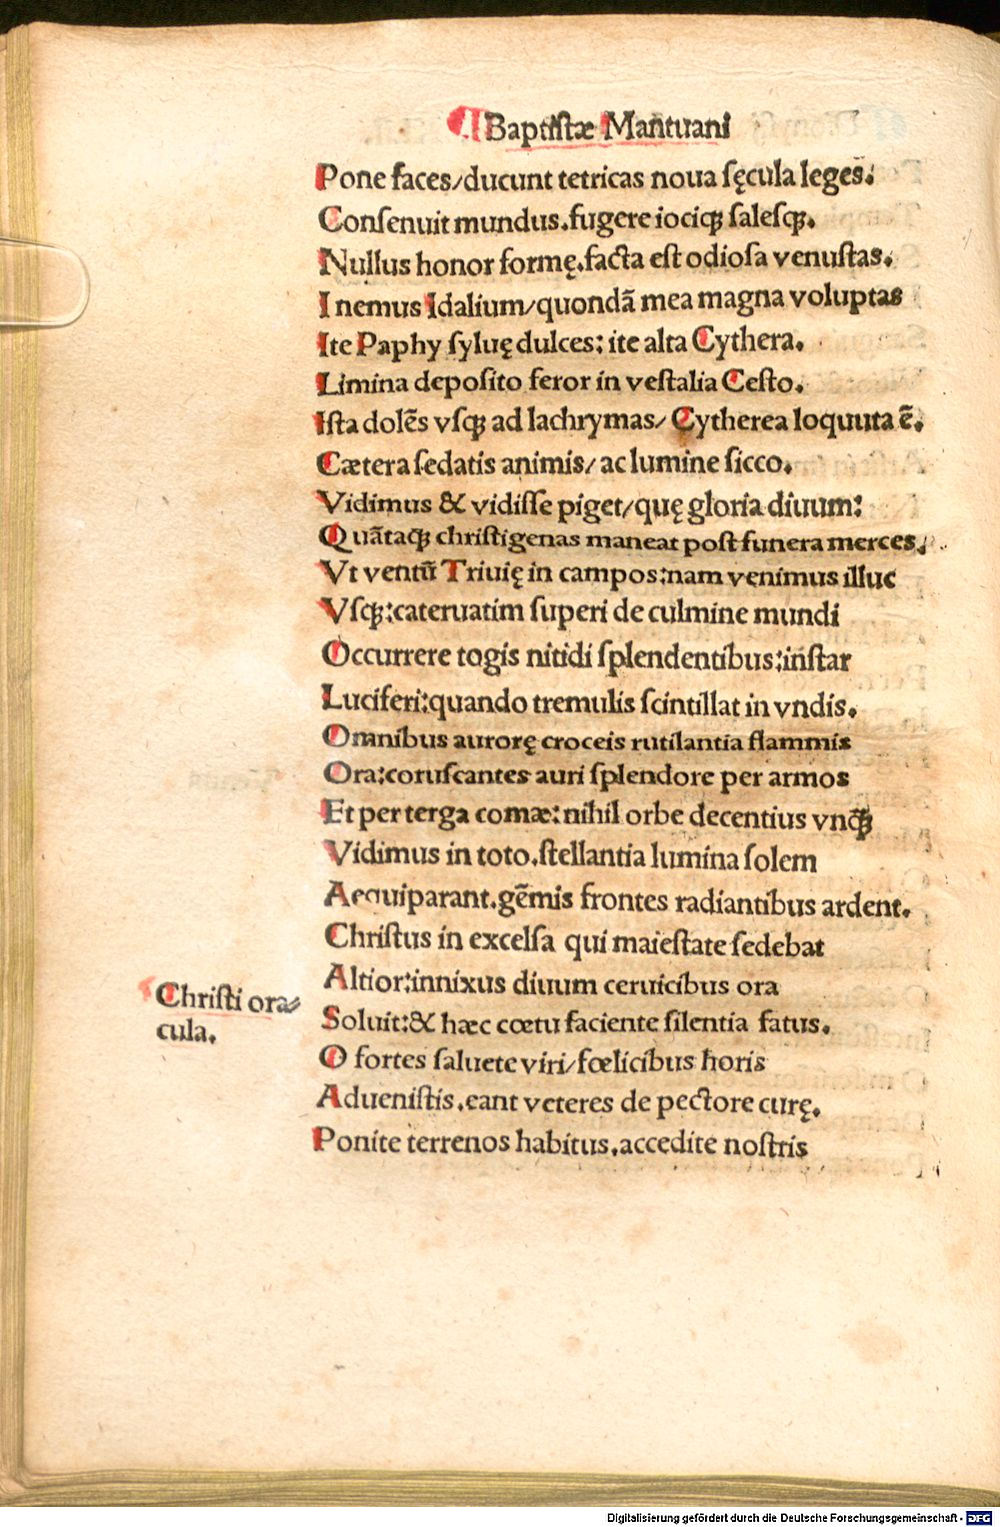 ¶ Baptistæ Mantuani
Pone faces/ducunt tetricas noua ſęcula leges.
Conſenuit mundus.fugere iociqꝫ ſaleſqꝫ.
Nullus honor formę.facta eſt odioſa venuſtas.
I nemus Idalium/quondā mea magna voluptas
Ite Paphy ſyluę dulces: ite alta Cythera.
Limina depoſito feror in veſtalia Ceſto.
Iſta dolēs vſqꝫ ad lachrymas/ Cytherea loquuta ē.
Cætera ſedatis animis/ ac lumine ſicco.
Vidimus & vidiſſe piget/quę gloria diuum:
Quātaqꝫ chriſtigenas maneat poſt funera merces.
Vt ventū Triuię in campos:nam venimus illuc
Vſqꝫ:cateruatim ſuperi de culmine mundi
Occurrere togis nitidi ſplendentibus:inſtar
Luciferi:quando tremulis ſcintillat in vndis.
Omnibus aurorę croceis rutilantia flammis
Ora:coruſcantes auri ſplendore per armos
Et per terga comæ:nihil orbe decentius vnqꝫ̄
Vidimus in toto.ſtellantia lumina ſolem
Aequiparant.gēmis frontes radiantibus ardent.
Chriſtus in excelſa qui maieſtate ſedebat
Altior:innixus diuum ceruicibus ora
Chriſti ora⸗
cula.
Soluit:& hæc cœtu faciente ſilentia fatus.
O fortes ſaluete viri/fœlicibus horis
Adueniſtis.eant veteres de pectore curę.
Ponite terrenos habitus.accedite noſtris
Digitalisierung gefördert durch die Deutsche Forschungsgemeinschaft - DFG